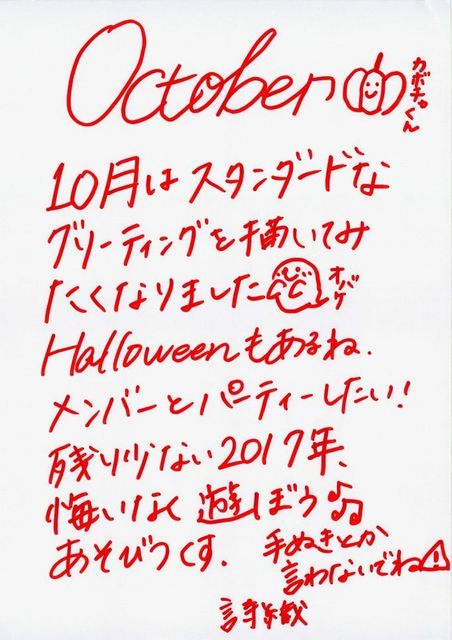 October
カボチャくん
10月はスタンダードな
グリーティングを描いてみ
たくなりました
オバケ
Halloweenもあるね.
メンバーとパーティーしたい!
残り少ない2017年、
悔いなく遊ぼう♪♫
あそびつくす.
手ぬきとか
言わないでね⚠
詩織